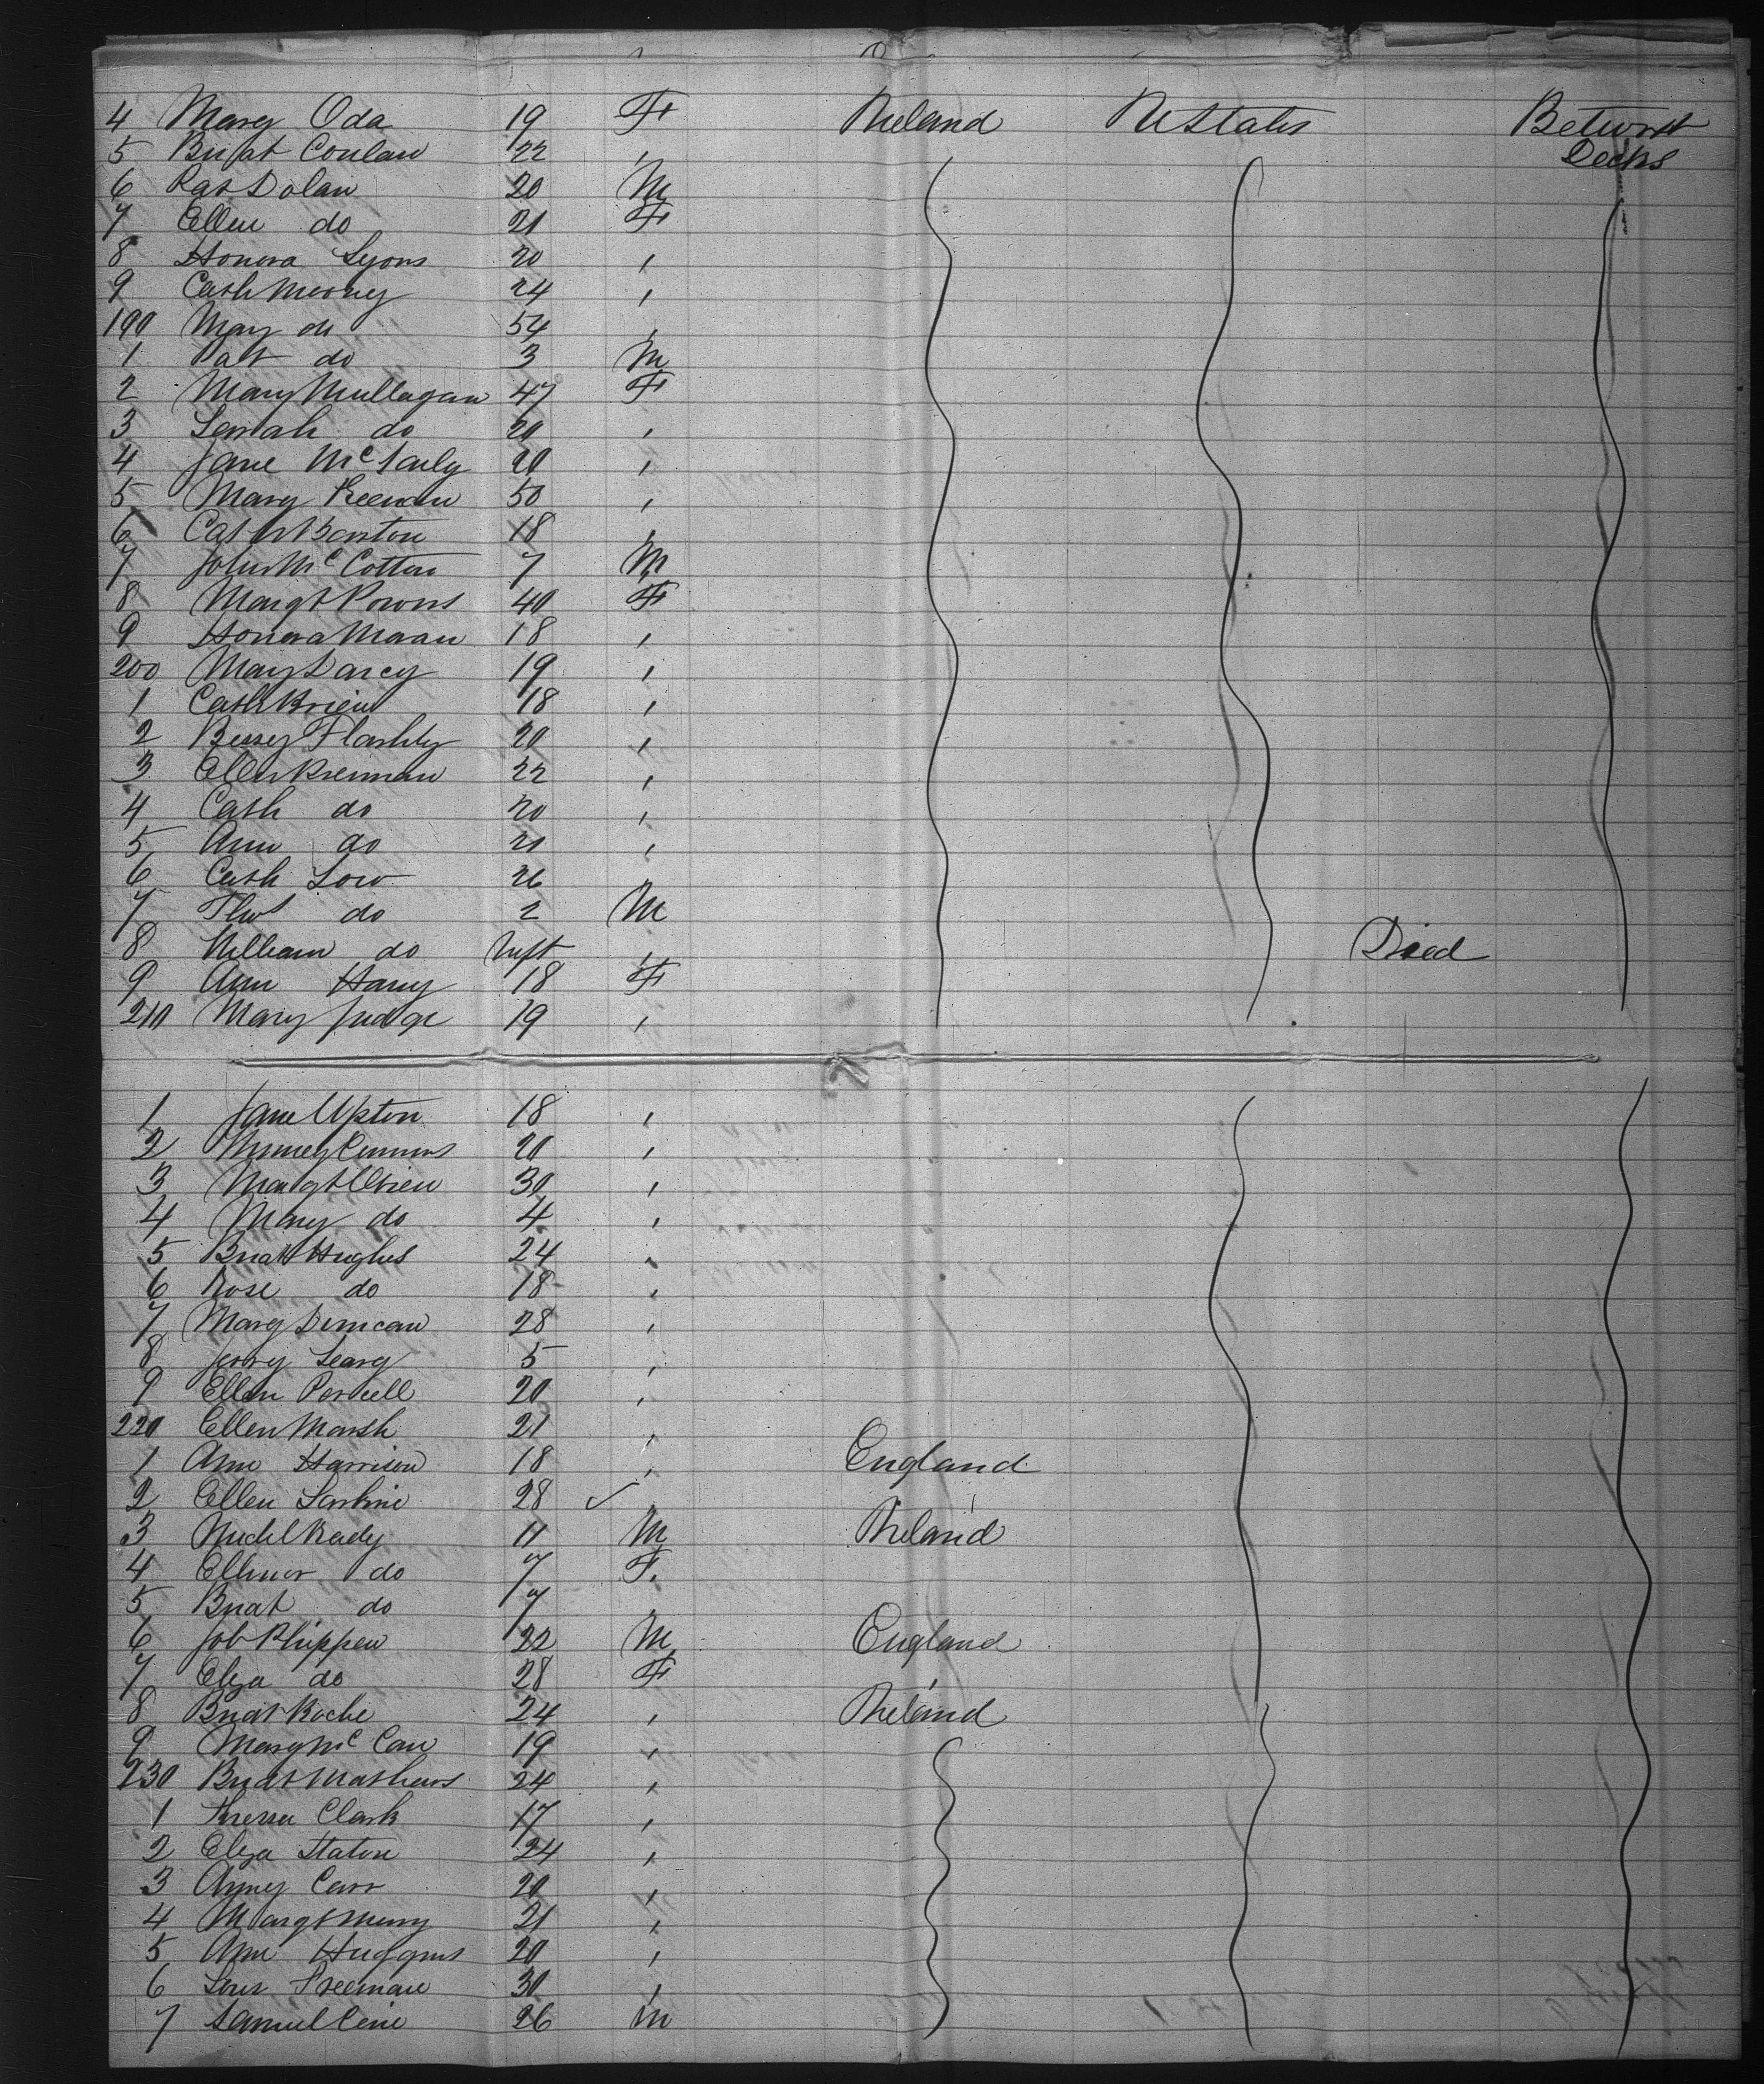 4 Mary Oda 19 F Ireland U States Betwixt
5 Bridt Conlan 22 " Decks
6 Pat Dolan 20 M
7 Ellen do 21 F
8 Honora Lyons 20 "
9 Cath Mooney 24 "
190 Mary do 54 "
1 Pat do 3 M
2 Mary Mullagan 47 F
3 Sarrah do 20 "
4 Jane 20 "
5 Mary Keenan 50 "
6 Cath Barston 18 "
7 John McCotton 7 M
8 Margt Powers 40 F
9 Honora Moran 18 "
200 Mary Darcy 19 "
1 Cath Brien 18 "
2 Bessey Flashby 20 "
3 Ellen Brennan 22 "
4 Cath do 20 "
5 Ann do 21 "
6 Cath Low 26 "
7 Thos do 2 M
8 William do Inft " Died
9 Ann Hany 18 F
210 Mary Judge 19 "
1 Jane Upton 18 "
2 20 "
3 Margt OBrien 30 "
4 Mary do 4 "
5 Bridt Hughes 24 "
6 Rose do 18 "
7 Mary Duncan 28 "
8 Jerry Leary 5 "
9 Ellen Purcell 20 "
220 Ellen Marsh 21 "
1 Ann Harrison 18 " England
2 Ellen 28 ✓ " "
3 Michl Rady 11 M Ireland
4 Ellenor do 7 F
5 Bridt do 7 "
6 Job Phippen 22 M England
7 Eliza do 28 F "
8 Bridt Roche 24 " Ireland
9 Mary McCan 19 "
230 Bridt Mathews 24 "
1 Clark 17 "
2 Eliza Staton 24 "
3 Anney Carr 20 "
4 Margt Murry 21 "
5 Ann Huggins 20 "
6 Freeman 30 "
7 Samuel 26 M